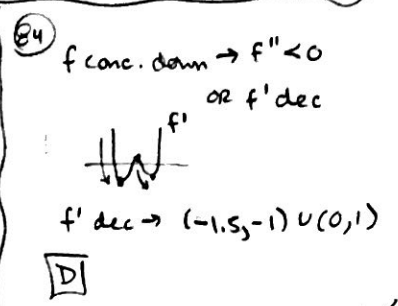 84
f conc. down → f"<0
OR f' dec
f'
f' dec → (-1.5,-1) ∪ (0,1)
D